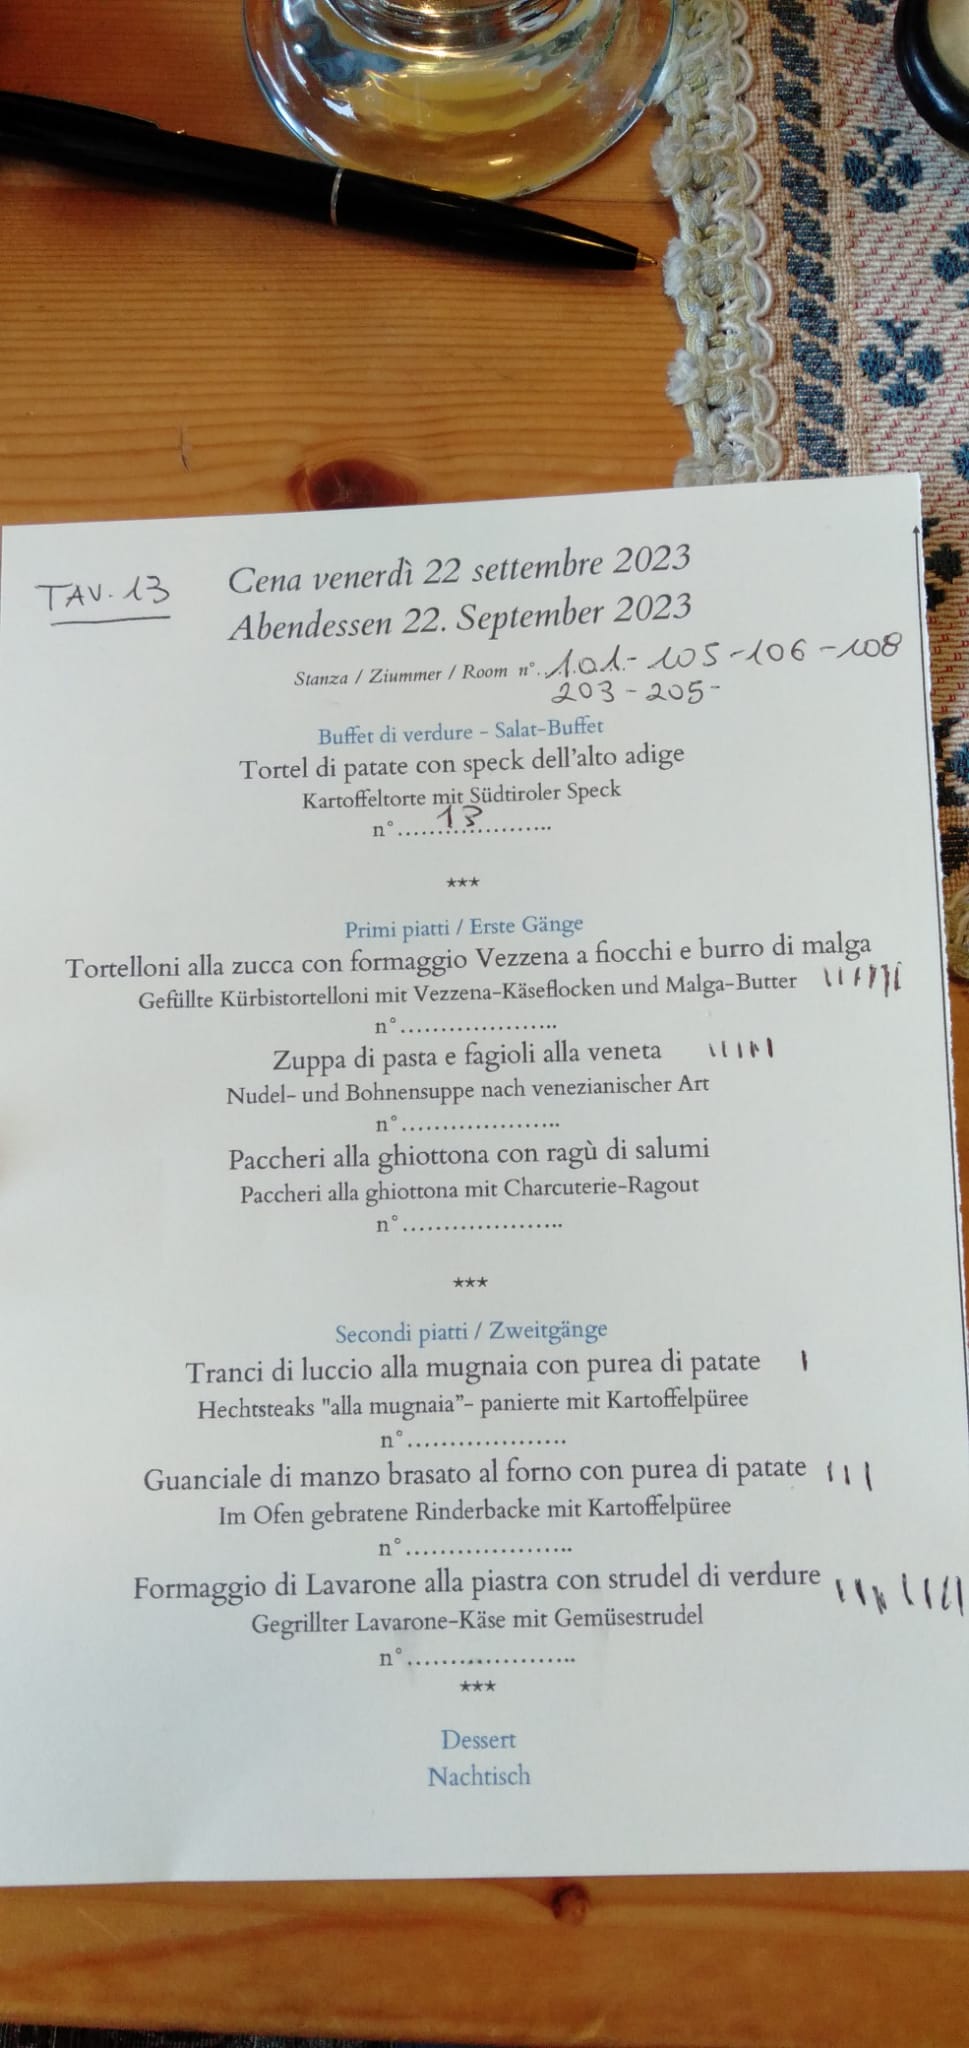 TAV. 13
Cena venerdì 22 settembre 2023
Abendessen 22. September 2023
Stanza / Ziummer / Room n°. 101 - 105 - 106 - 108
203 - 205 -
Buffet di verdure - Salat-Buffet
Tortel di patate con speck dell'alto adige
Kartoffeltorte mit Südtiroler Speck
n°.......13..............
***
Primi piatti / Erste Gänge
Tortelloni alla zucca con formaggio Vezzena a fiocchi e burro di malga
Gefüllte Kürbistortelloni mit Vezzena-Käseflocken und Malga-Butter
n°.....................
Zuppa di pasta e fagioli alla veneta IIIII
Nudel- und Bohnensuppe nach venezianischer Art
n°.....................
Paccheri alla ghiottona con ragù di salumi
Paccheri alla ghiottona mit Charcuterie-Ragout
n°.....................
***
Secondi piatti / Zweitgänge
Tranci di luccio alla mugnaia con purea di patate I
Hechtsteaks "alla mugnaia”- panierte mit Kartoffelpüree
n°.....................
Guanciale di manzo brasato al forno con purea di patate III
Im Ofen gebratene Rinderbacke mit Kartoffelpüree
n°.....................
Formaggio di Lavarone alla piastra con strudel di verdure
Gegrillter Lavarone-Käse mit Gemüsestrudel
n°.....................
***
Dessert
Nachtisch